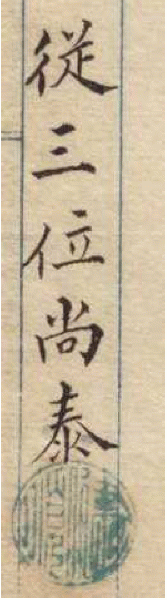 從三位尚泰